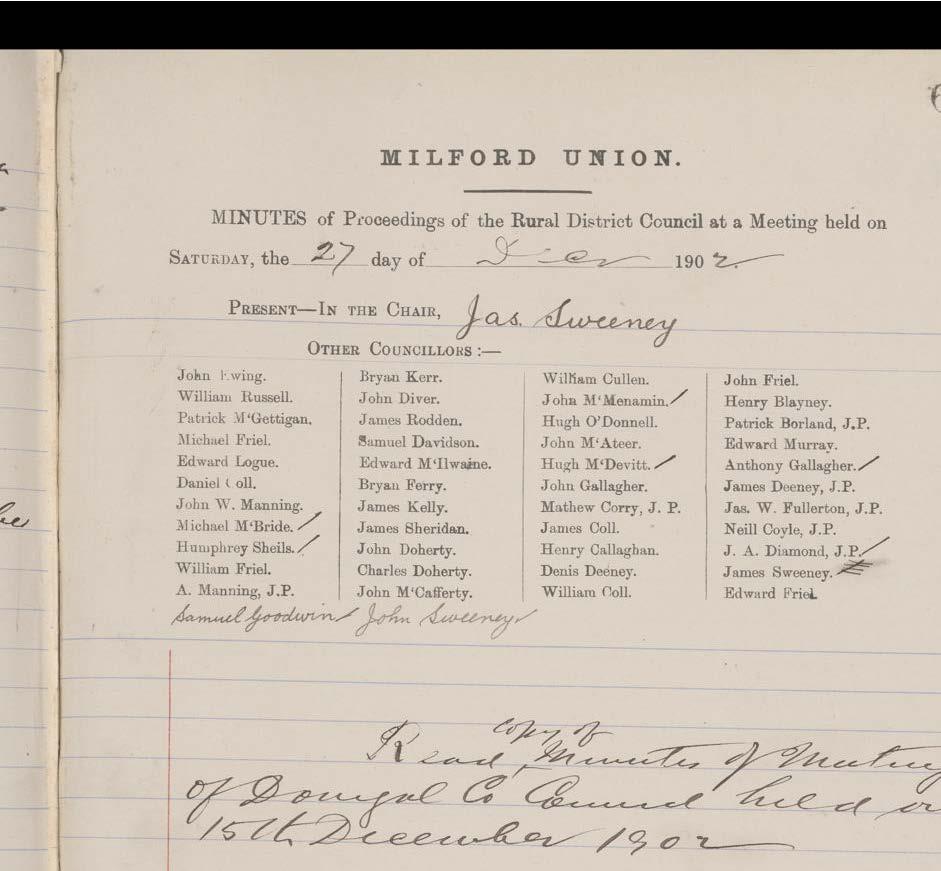 MILFORD UNION.
MINUTES of Proceedings of the Rural District Council at a Meeting held on
SATURDAY, the 27 day of Decr 1902.
PRESENT—IN THE CHAIR, Jas. Sweeney
OTHER COUNCILLORS :—
John Ewing.
William Russell.
Patrick M‘Gettigan.
Michael Friel.
Edward Logue.
Daniel Coll.
John W. Manning.
Michael M‘Bride.
Humphrey Sheils.
William Friel.
A. Manning, J.P.
Samuel Goodwin
Bryan Kerr.
John Diver.
James Rodden.
Samuel Davidson.
Edward M‘Ilwaine.
Bryan Ferry.
James Kelly.
James Sheridan.
John Doherty.
Charles Doherty.
John M‘Cafferty.
John Sweeney
William Cullen.
John M‘Menamin.
Hugh O’Donnell.
John M‘Ateer.
Hugh M‘Devitt.
John Gallagher.
Mathew Corry, J. P.
James Coll.
Henry Callaghan.
Denis Deeney.
William Coll.
John Friel.
Henry Blayney.
Patrick Borland, J.P.
Edward Murray.
Anthony Gallagher.
James Deeney, J.P.
Jas. W. Fullerton, J.P.
Neill Coyle, J.P.
J. A. Diamond, J.P.
James Sweeney.
Edward Friel
Read copy of Minutes of Meeting
of Donegal Co Council held
15th December 1902